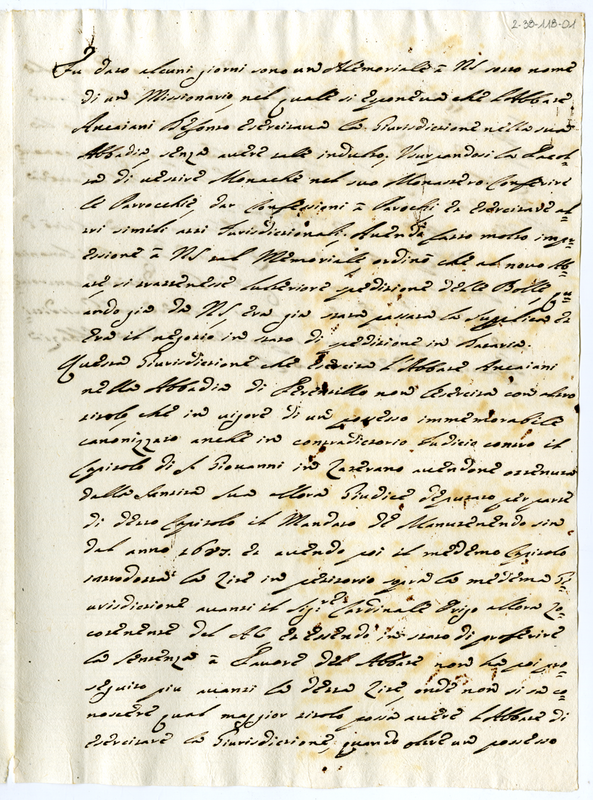 2-38-118-01
Fu dato alcuni giorni sono un Memoriale à NS sotto nome
di un Missionario, nel quale si esponeva che l'Abbate
Ancaiani Defonto esercitava la Giurisdizione nella sua
Abbadia senza avere tale indulto, Usurpandosi la Facol=
tà di vestire Monache nel suo Monastero, Conferire
le Parrocchie, dar Confessioni à Parochi, et esercitare al=
tri simili atti Giurisdizionali. Avendo fatto molta imp=
ressione à NS tal Memoriale ordinò che al novo Ab=
ate si trattenesse l'ulteriore spedizione delle Bolle, qu=
ando già da NS era già stata passata la supplica et
era il negozio in stato di spedizione in Dataria.
Questa Giurisdizione che esercita l'Abbate Ancaiani
nella Abbadia di Ferentillo non l'esercita con altro
titolo che in vigore di un possesso immemorabile
canonizzato anche in contradittorio Iudicio contro il
Capitolo di S. Giovanni in Laterano avendone ottenuta
dalla Sentita sua allora Giudice deputato per parte
di detto Capitolo il Mandato de Manutenendo sin
dal anno 1687. et avendo poi il medemo Capitolo
introdotta la Lite in petitorio sopra la medema Gi=
urisdizione avanti il Sigr. Cardinale Priga allora Lo=
cotenente del AC et essendo in stato di proferire
la sentenza à Favore del Abbate non ha poi pro=
seguito piu avanti la detta Lite, onde non si sa co=
noscere qual maggior titolo possa avere l'Abbate di
esercitare la Giurisdizione, quando oltre un possesso